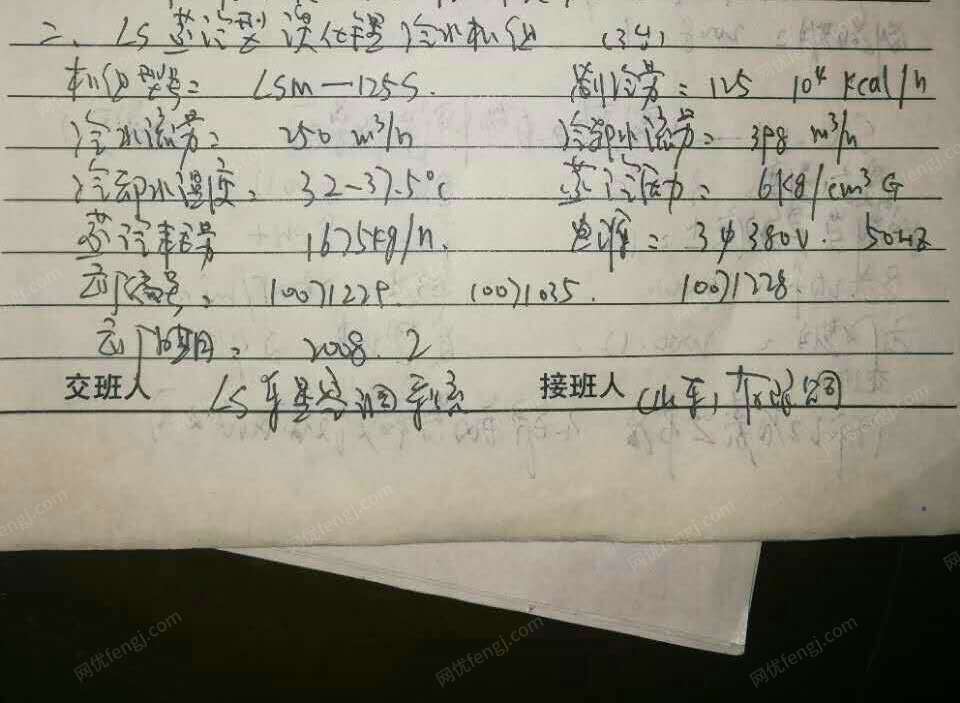 二、LS 蒸汽型溴化锂冷水机组 (3台)
机组型号: LSM—125S. 制冷量: 125 10⁴ kcal/h
冷水流量: 250 m³/h 冷却水流量: 398 m³/h
冷却水温度: 32—37.5°C 蒸汽压力: 6kg/cm³ G
蒸汽耗量 1675kg/h. 电源: 3φ380V. 50HZ
出厂编号: 10071229. 10071035. 10071228
出厂日期: 2008.2
交班人 LS 空调系 接班人 (山东) 有限公司
网优fengj.com